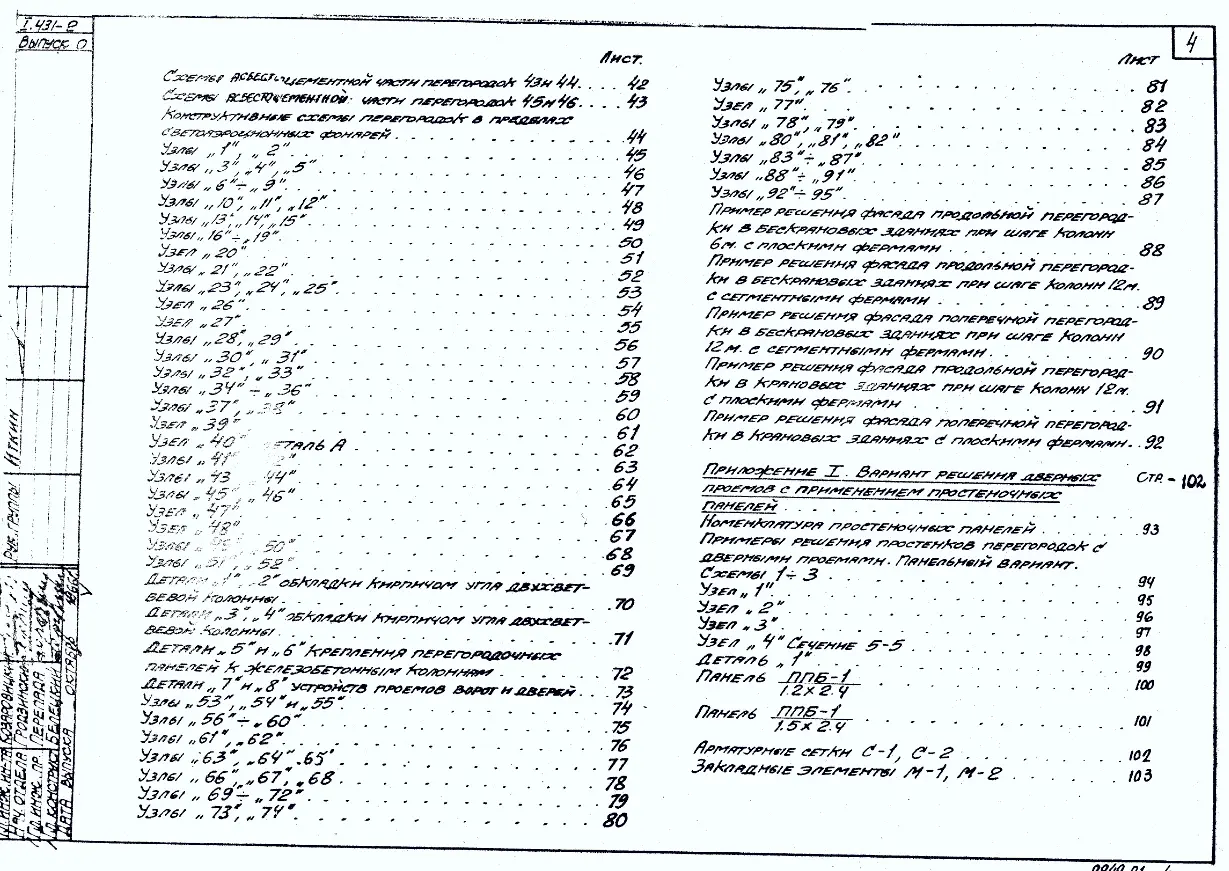 1.431-2
Выпуск 0
4
Лист.
Схемы асбестоцементной части перегородок 43и 44. 42
Схемы асбестоцементной части перегородок 45и 46. 43
Конструктивные схемы перегородок в пределах
светоаэрационных фонарей. 44
Узлы „1", „2" 45
Узлы „3", „4", „5" 46
Узлы „6"÷„9" 47
Узлы „10", „11", „12" 48
Узлы „13", „14", „15" 49
Узлы „16"÷„19" 50
Узел „20" 51
Узлы „21", „22" 52
Узлы „23", „24", „25" 53
Узел „26" 54
Узел „27" 55
Узлы „28", „29" 56
Узлы „30", „31" 57
Узлы „32", „33" 58
Узлы „34"÷„36" 59
Узлы „37", „38" 60
Узел „39" 61
Узел „40" деталь А 62
Узлы „41" 63
Узлы „43 „44" 64
Узлы „45", „46" 65
Узел „47" 66
Узел „48" 67
Узлы „49", „50" 68
Узлы „51", „52" 69
Детали „1" „2" обкладки кирпичом угла двухвет-
вевой колонны. 70
Детали „3", „4" обкладки кирпичом угла двухвет-
вевой колонны. 71
Детали „5" и „6" крепления перегородочных
панелей к железобетонным колоннам. 72
Детали „7" и „8" устройств проемов ворот и дверей. 73
Узлы „53", „54" и „55" 74
Узлы „56"÷„60" 75
Узлы „61", „62" 76
Узлы „63", „64" .65" 77
Узлы „66", „67, „68 78
Узлы „69÷„72" 79
Узлы „73", „74" 80
Лист
Узлы „75", „76" 81
Узел „77" 82
Узлы „78", „79" 83
Узлы „80", „81", „82" 84
Узлы „83"÷„87" 85
Узлы „88"÷„91" 86
Узлы „92"÷95" 87
Пример решения фасада продольной перегород-
ки в бескрановых зданиях при шаге колонн
6м. с плоскими фермами. 88
Пример решения фасада продольной перегород-
ки в бескрановых зданиях при шаге колонн 12м.
с сегментными фермами. 89
Пример решения фасада поперечной перегород-
ки в бескрановых зданиях при шаге колонн
12м. с сегментными фермами. 90
Пример решения фасада продольной перегород-
ки в крановых зданиях при шаге колонн 12м.
с плоскими фермами 91
Пример решения фасада поперечной перегород-
ки в крановых зданиях с плоскими фермами. 92
Приложение I. Вариант решения дверных стр.-102
проемов с применением простеночных
панелей
Номенклатура простеночных панелей 93
Примеры решения простенков перегородок с
дверными проемами. Панельный вариант.
Схемы 1÷3 94
Узел „1" 95
Узел „2" 96
Узел „3" 97
Узел „4" Сечение 5-5 98
Деталь „1" 99
Панель ППБ-1 100
1.2×2.4
Панель ППБ-1 101
1.5×2.4
Арматурные сетки С-1, С-2 102
Закладные элементы М-1, М-2 103
Рук. группы Иткин
Нач отдела
Гл. инж. пр. Перепада
Гл. констр.
Дата выпуска октябрь